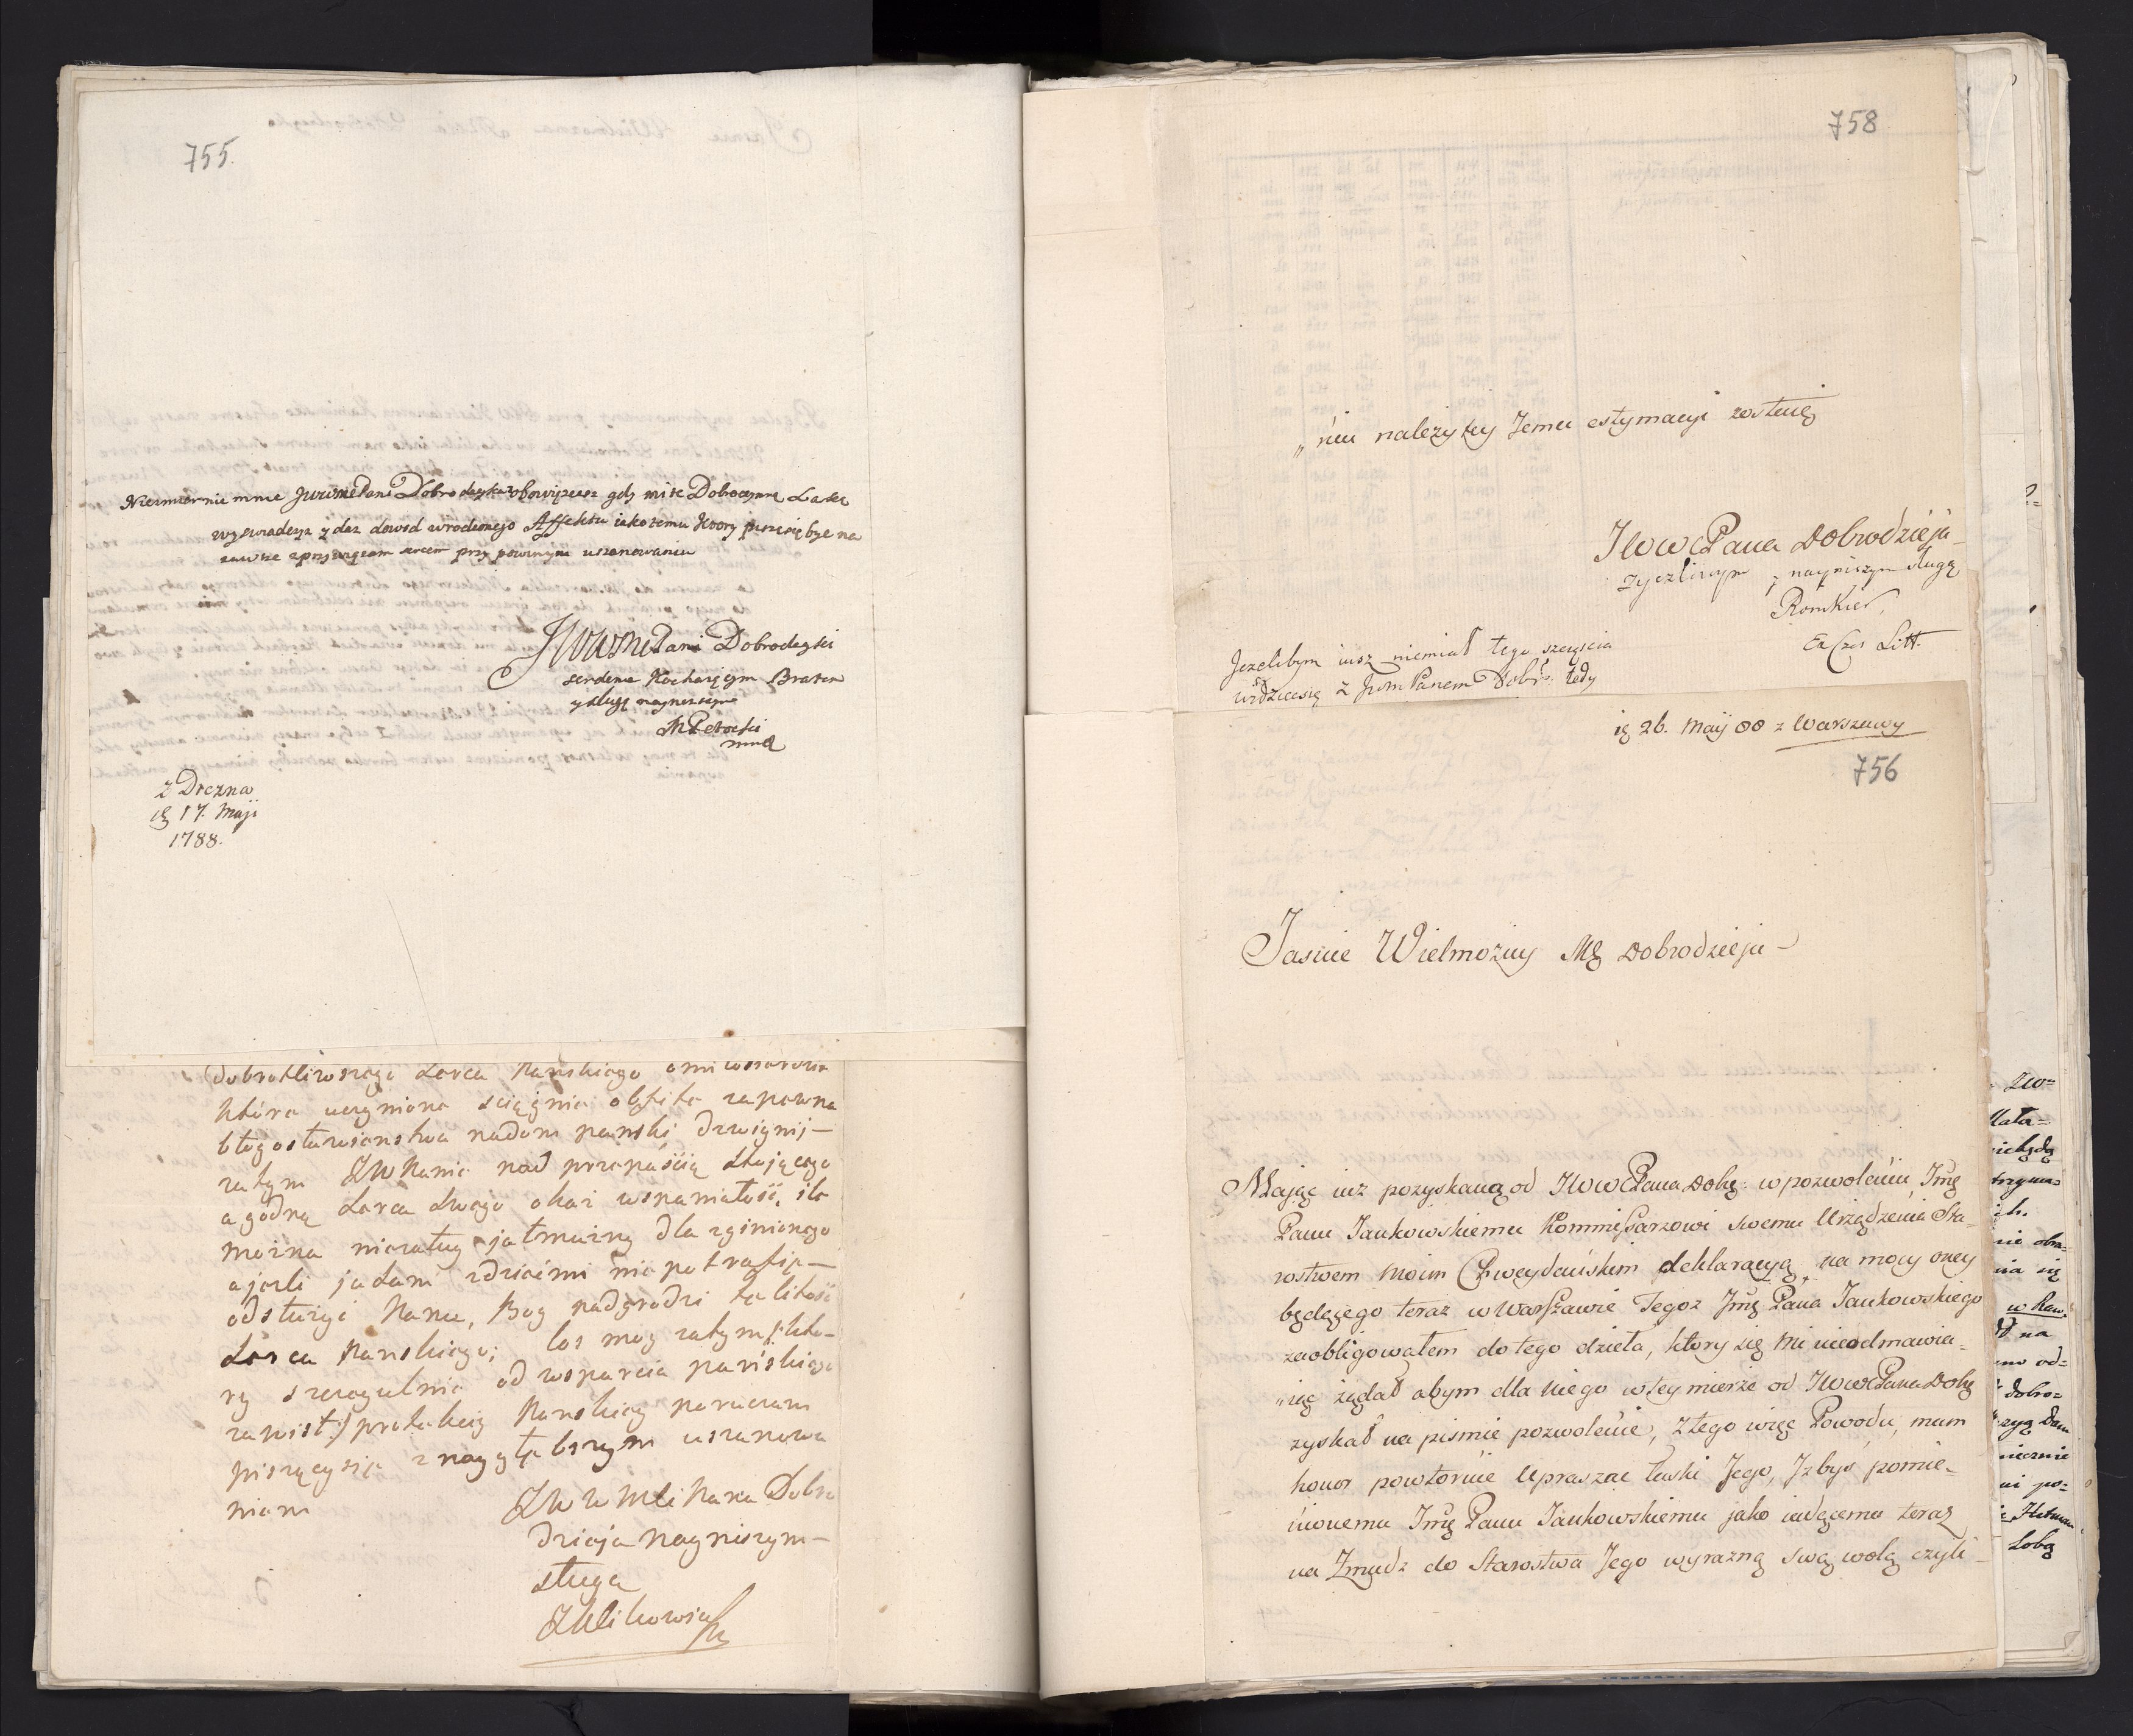 755.
Niezmiernie mnie JWWMPani Dobrodzyka obowiązuesz gdy mi te Dobroczynne Laske
wyswiadczysz y dasz dowod wrodzonego Affektu iako temu ktory pisze się bye na
zawsze z przywiązanem sercem przy powinnym uszanowaniu
JWWMPani Dobrodzyki
serdenie Kochaiącym Bratem
y sługą naynizszym
z Drezna
ię 17. Maji
1788.
dobrotliwszego serca Panskiego
która uczyniona sciągnie obfite zapewna
błogosławienstwa nadom panski dzwignij
zatym JW Panie nad przepaścią stojącego
a godną serca swego okaż wspaniałość, ile
można nieratuy jałmużną dla zginionego
a jezli jadani zdziećmi niepotrafię
odsłużyć Panu, Bog nadgrodzi tę litość
serca Panskiego; los moy zatym /: któ-
ry szczegulnie od wsparcia pańskiego
zawist :/ protekcij Panskiey poruczam
piszącysię z naygłębszym uszanowa
niem
JWW Mci Pana Dobro
dzieja Nayniszym
sługa
758
„niu należytey Jemu estymacyi zostaię
JWWPana Dobrodzieja
zyczliwym y nayniszym sługą
Romkier,
Ex Czes Litt.
Jezelibym iusz niemiał tego szczęscia
widziecsię z Jwm Panem Dobr: tedy
ię 26. Maij 88 z Warszawy
756
Jasnie Wielmożny Mę Dobrodzieju
Mając iuż pozyskaną od JWWPana Dobę: w pozwoleniu Jmę
Panu Jankowskiemu Kommissarzowi swemu Urządzenia Sta-
rostwem moim Chweydańskim deklaracyą, na mocy oney
będącego teraz w Warszawie Tegoż Jmę Pana Jankowskiego
zaobligowałem do tego dzieła, ktory się mi nieodmawia-
„iąc żądał abym dla niego wtey mierze od JWWPana Dobę
zyskał na pismie pozwolenie, Ztego więc Powodu, mam
honor powtornie Upraszać łaski Jego, Jżbyś pomie-
nionemu Jmę Panu Jankowskiemu jako iadącemu teraz
na Zmudz do Starostwa Jego wyrazną swą wolą czyli